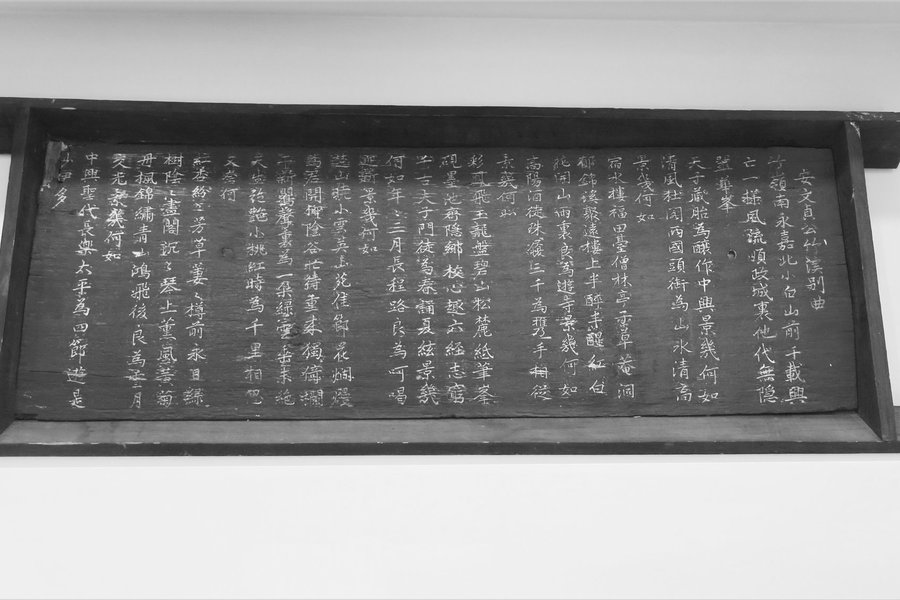 安文貞公竹溪別曲
竹嶺南永嘉北小白山前千載興
亡一樣風流順政城裏他代無隱
翠華峯
天子藏胎為釀作中興景幾何如
清風杜閣兩國頭銜為山水清高
景幾何如
宿水樓福田臺僧林亭子草菴洞
郁錦溪聚遠樓上半醉半醒紅白
花開山雨裏良為遊寺景幾何如
高陽酒徒珠履三千為携手相從
景幾何如
彩鳳飛玉龍盤碧山松麓紙筆峯
硯墨池齊隱鄉校心趣六經志窮
千古夫子門徒為春誦夏絃景幾
何如年〻三月長程路良為呵喝
迎新景幾何如
楚山曉小雲英山苑佳節花爛熳
為君開柳陰谷忙待重來獨倚欄
干新鶯聲裏為一朶綠雲垂未絶
天生絶艶小桃紅時為千里相思
又奈何
紅杏紛〻芳草萋〻樽前永日綠
樹陰〻畫閣沉〻琴上薰風黃菊
丹楓錦繡青山鴻飛後良為雪月
交光景幾何如
中興聖代長樂太平為四節遊是
沙伊多